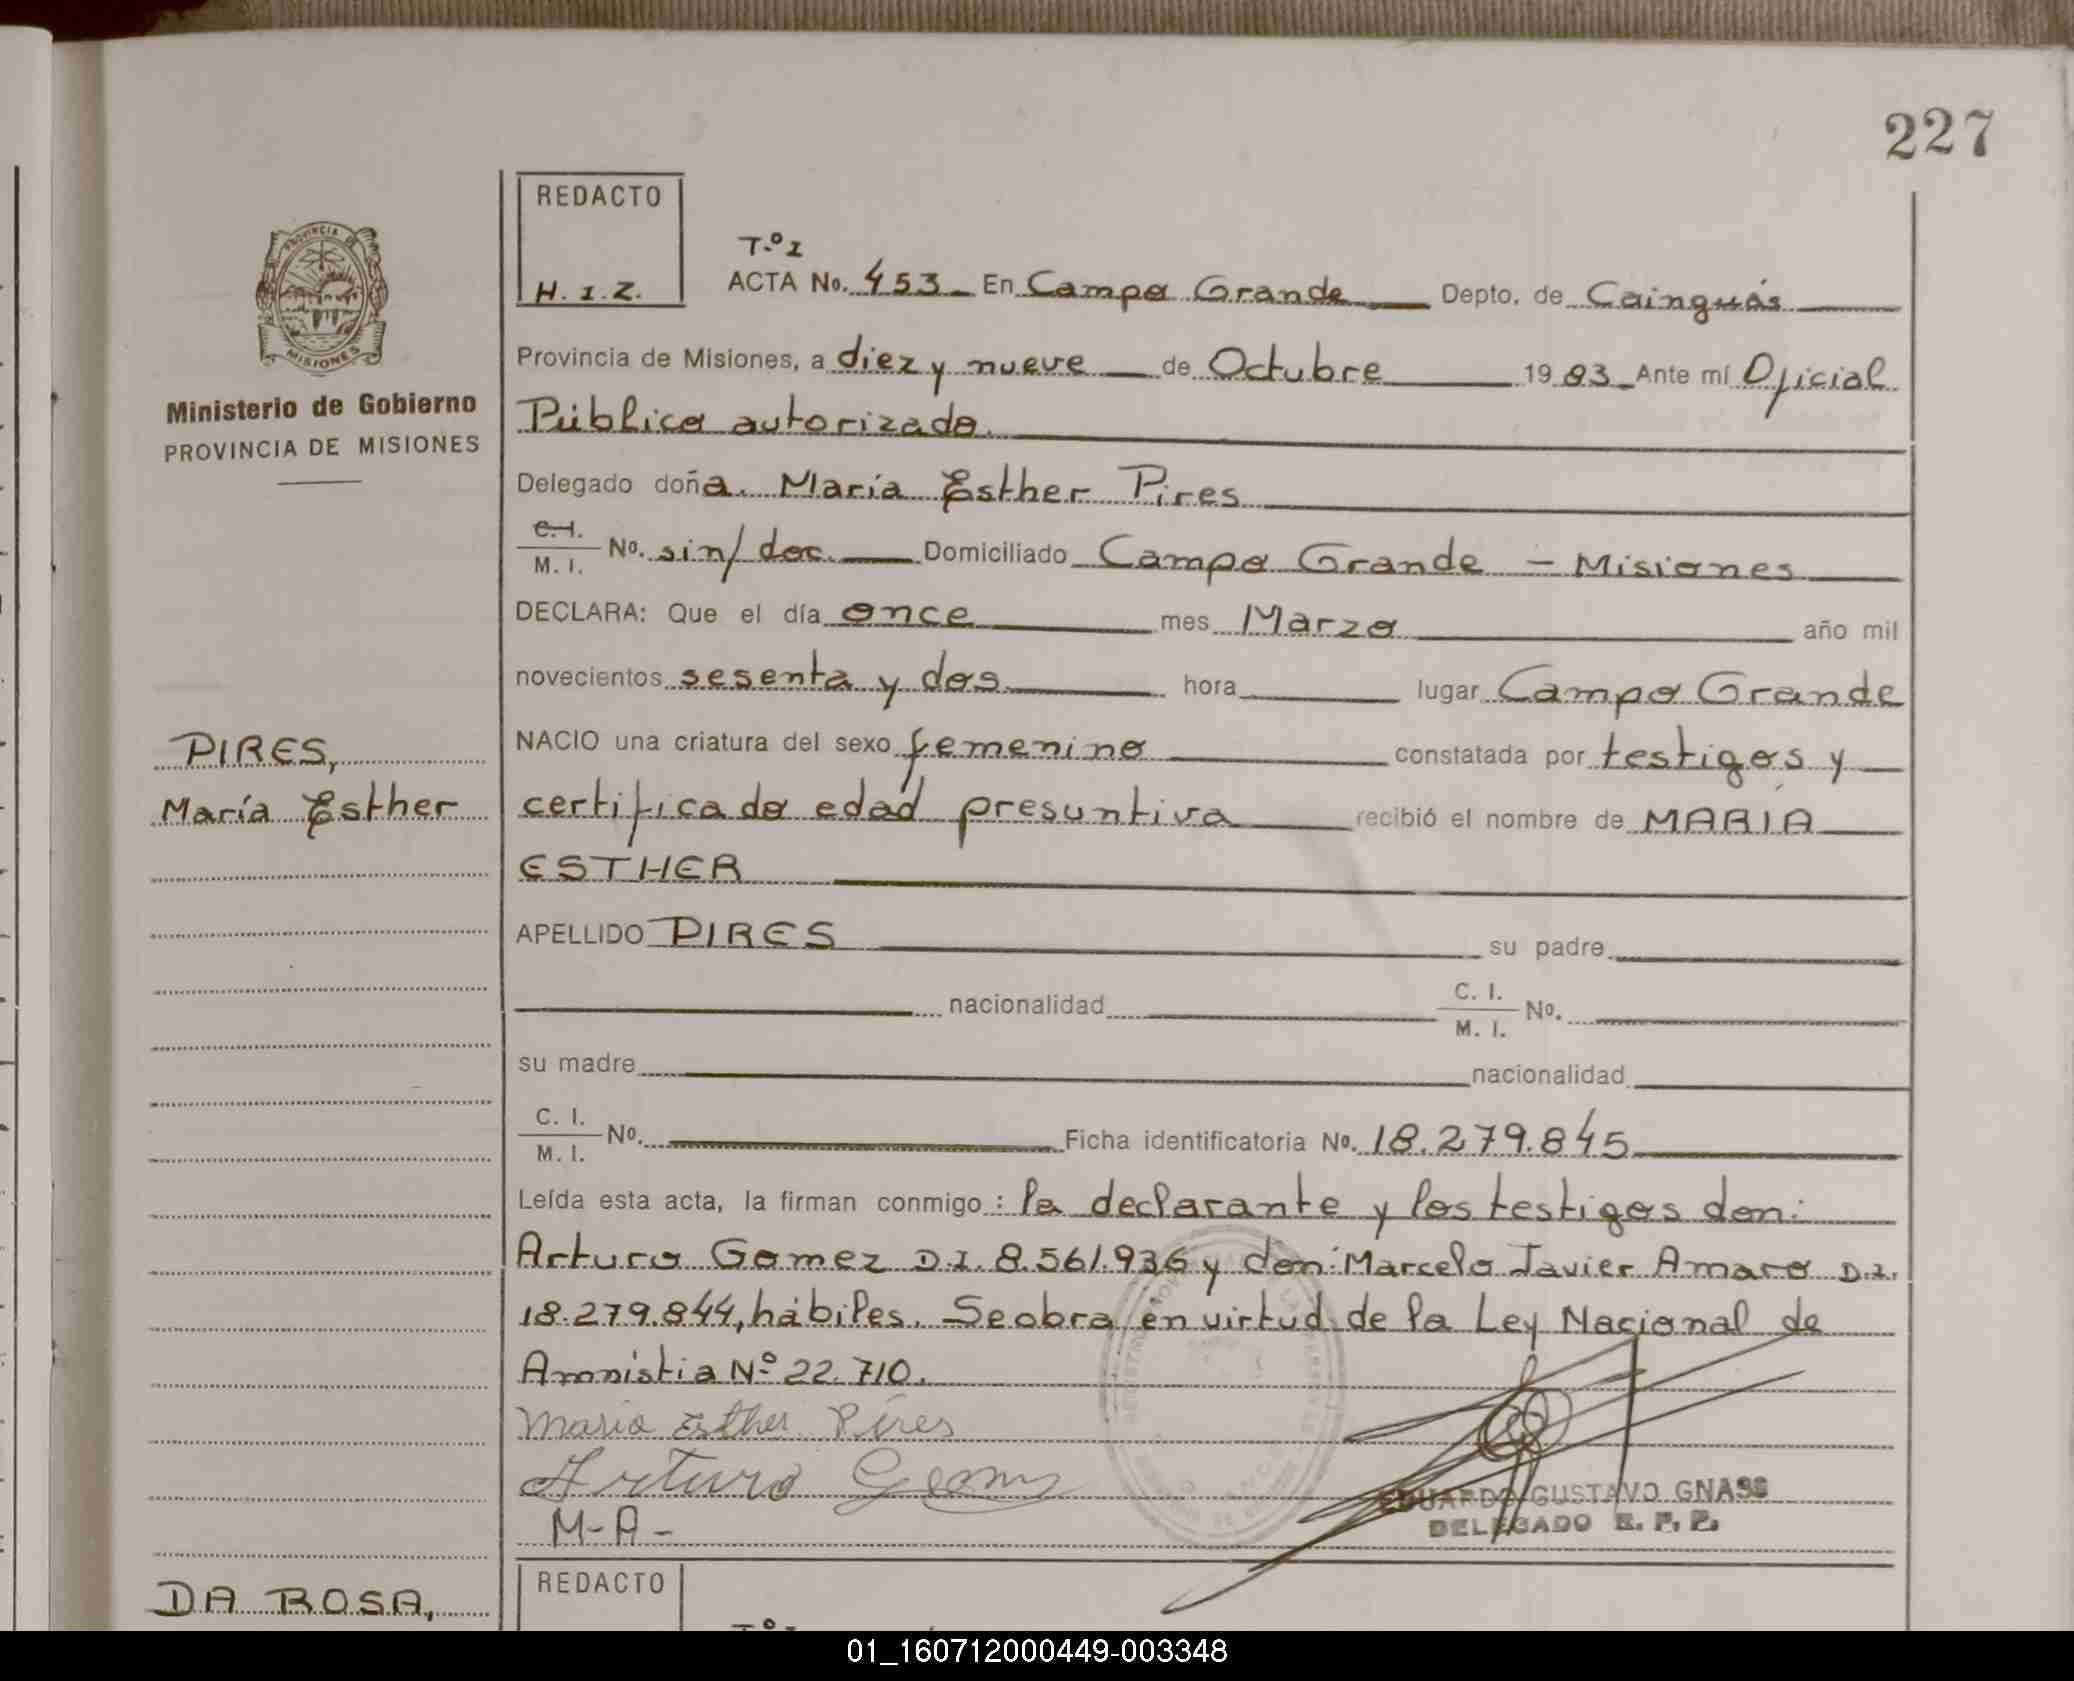 227
REDACTO
H. I. Z.
T.º I
ACTA No. 453 En Campo Grande Depto. de Cainguás
Provincia de Misiones, a diez y nueve de Octubre 1983 Ante mí Oficial
Público autorizado.
Ministerio de Gobierno
PROVINCIA DE MISIONES
Delegado doña. María Esther Pires
C.I. / M. I. No. sin/doc. Domiciliado Campo Grande - Misiones
DECLARA: Que el día once mes Marzo año mil
novecientos sesenta y dos hora lugar Campo Grande
PIRES,
María Esther
NACIO una criatura del sexo femenino constatada por testigos y
certificado edad presuntiva recibió el nombre de MARIA
ESTHER
APELLIDO PIRES su padre
nacionalidad C. I. / M. I. No.
su madre nacionalidad
C. I. / M. I. No. Ficha identificatoria No. 18.279.845
Leída esta acta, la firman conmigo: la declarante y los testigos don:
Arturo Gomez D.I. 8.561.936 y don: Marcelo Javier Amaro D.I.
18.279.844, hábiles. Se obra en virtud de la Ley Nacional de
Amnistia Nº 22.710.
Maria Esther Pires
Arturo Gomez
M-A-
EDUARDO GUSTAVO GNASS
DELEGADO R. P. P.
DA ROSA,
REDACTO
T.º I
01_160712000449-003348